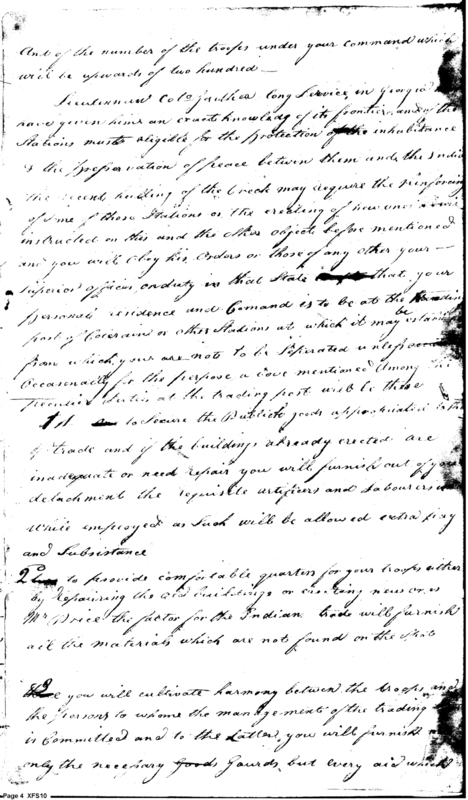 And of the number of the troops under your command which
will be upwards of two hundred —
Lieutennant Colo Gaither long Service in Georgia
have given him an exact knowledg of its frontier and of the
Stations most eligible for the protection of the inhabitance
& the preservation of peace betwen them and the India
the recent holding of the Creek may require the reinforcing
of some of those Stations or the erecting of new ones
instructed on this and the other objects before mentioned
and you will obey his orders or those of any other your —
superior officer on duty in that State that your
personal residence and Comand is to be at the
post of Colerain or other Stations at which it may be
from which your are not to be seperated unless
Occasionally for the purpose above mentioned Among the
Peculiar duties at the trading post will be these
1st to secure the Publick goods appropriated to the
of trade and if the buildings already erected are
inadequate or need repair you will furnish out of your
detachment the requisite artificers and Labourers
while employed as such will be allowed extra pay
and Subsistance
2d to provide comfortable quarters for your troops either
by Repairing the old buildings or erecting new ones
Mr Price the factor for the Indian trade will furnish
all the materials which are not found on the spot
you will cultivate harmony betwen the troops and
the persons to whome the management of the trading
is Committed and to the Latter you will furnish
only the necessary Gaurds but every aid which
Page 4 XFS10